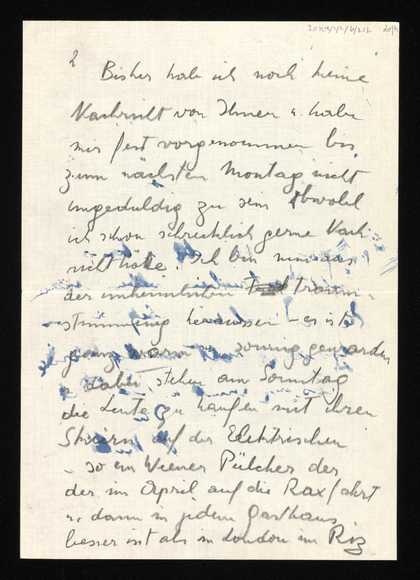 2 Bisher habe ich noch keine
Nachricht von Ihnen u. habe
mir fest vorgenommen bis
zum nächsten Montag nicht
ungeduldig zu sein obwohl
ich schon schrecklich gerne Nach-
richt hätte. Ich bin nun aus
der unheimlichen Traum-
stimmung heraussen – es ist
ganz warm u. sonnig geworden
u. dabei stehen am Sonntag
die Leute zu haufen mit ihren
Skiern auf der Elektrischen
– so ein Wiener Pülcher der
der im April auf die Rax fährt
u. dann in jedem Gasthaus
besser ist als in London im Riz